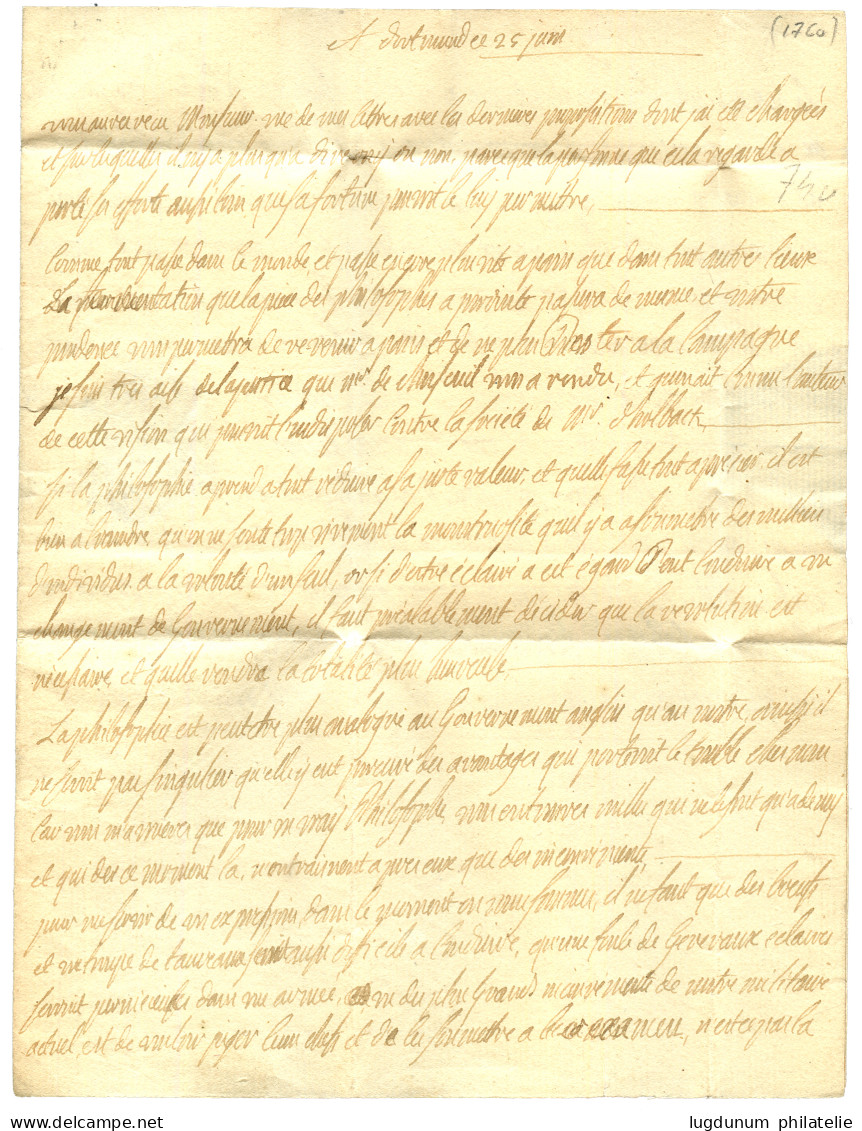 A dortmund ce 25 juin
(1760)
vous avez recu Monsieur une de mes lettres avec les dernieres propositions dont j'ai eté chargées
et sur lesquelles il n'y a plus qu'a dire ouy ou non, parce que la personne que cela regarde a
porté ses efforts aussi loin que sa fortune peuvent le luy permettre,
comme tout passe dans le monde et passe encore plus vite a paris que dans tout autres lieux
la fermentation que la piece des philosophes a produite passera de meme, et votre
prudence vous permettra de revenir a paris et de ne plus Rester a la Campagne
je suis tres aise de la justice que Mr. de Choiseuil vous a rendu, et connait comme l'auteur
de cette vision qui pouvoit l'indisposer contre la société de Mr. d'holback,
si la philosophie aprend a tout reduire a sa juste valeur, et quelle fasse tout aprecier, il est
bien a craindre qu'on ne sente trop vivement la monstruosité qu'il y a a soumettre des millions
d'individus a la volonté d'un seul, or si d'etre éclairé a cet égard Peut conduire a un
changement de Gouvernement, il faut préalablement décider que la revolution est
necessaire, et quelle rendra la totalité plus heureuse,
La philosophie est peut etre plus analogue au Gouvernement anglois qu'au notre, ainsi il
ne seroit pas singulier qu'elle y eut procuré des avantages qui porteroit le trouble chez nous
car vous m'avouerez que pour un vray Philosophe, vous en trouvez mille qui ne le sont qu'a demy
et qui des ce moment la, n'entrainent apres eux que des inconvenients
pour me servir de mon expression, dans le moment ou nous sommes, il ne faut que des boeufs
et un troupe de taureaux seroit aussi difficile a conduire, qu'une foule de Generaux eclairés
seroit pernicieuse dans une armée, un des plus Grands inconvenients de notre militaire
actuel, est de vouloir juger leurs chefs et de les soumettre a leur examen, n'est ce pas la
lugdunum philatelie